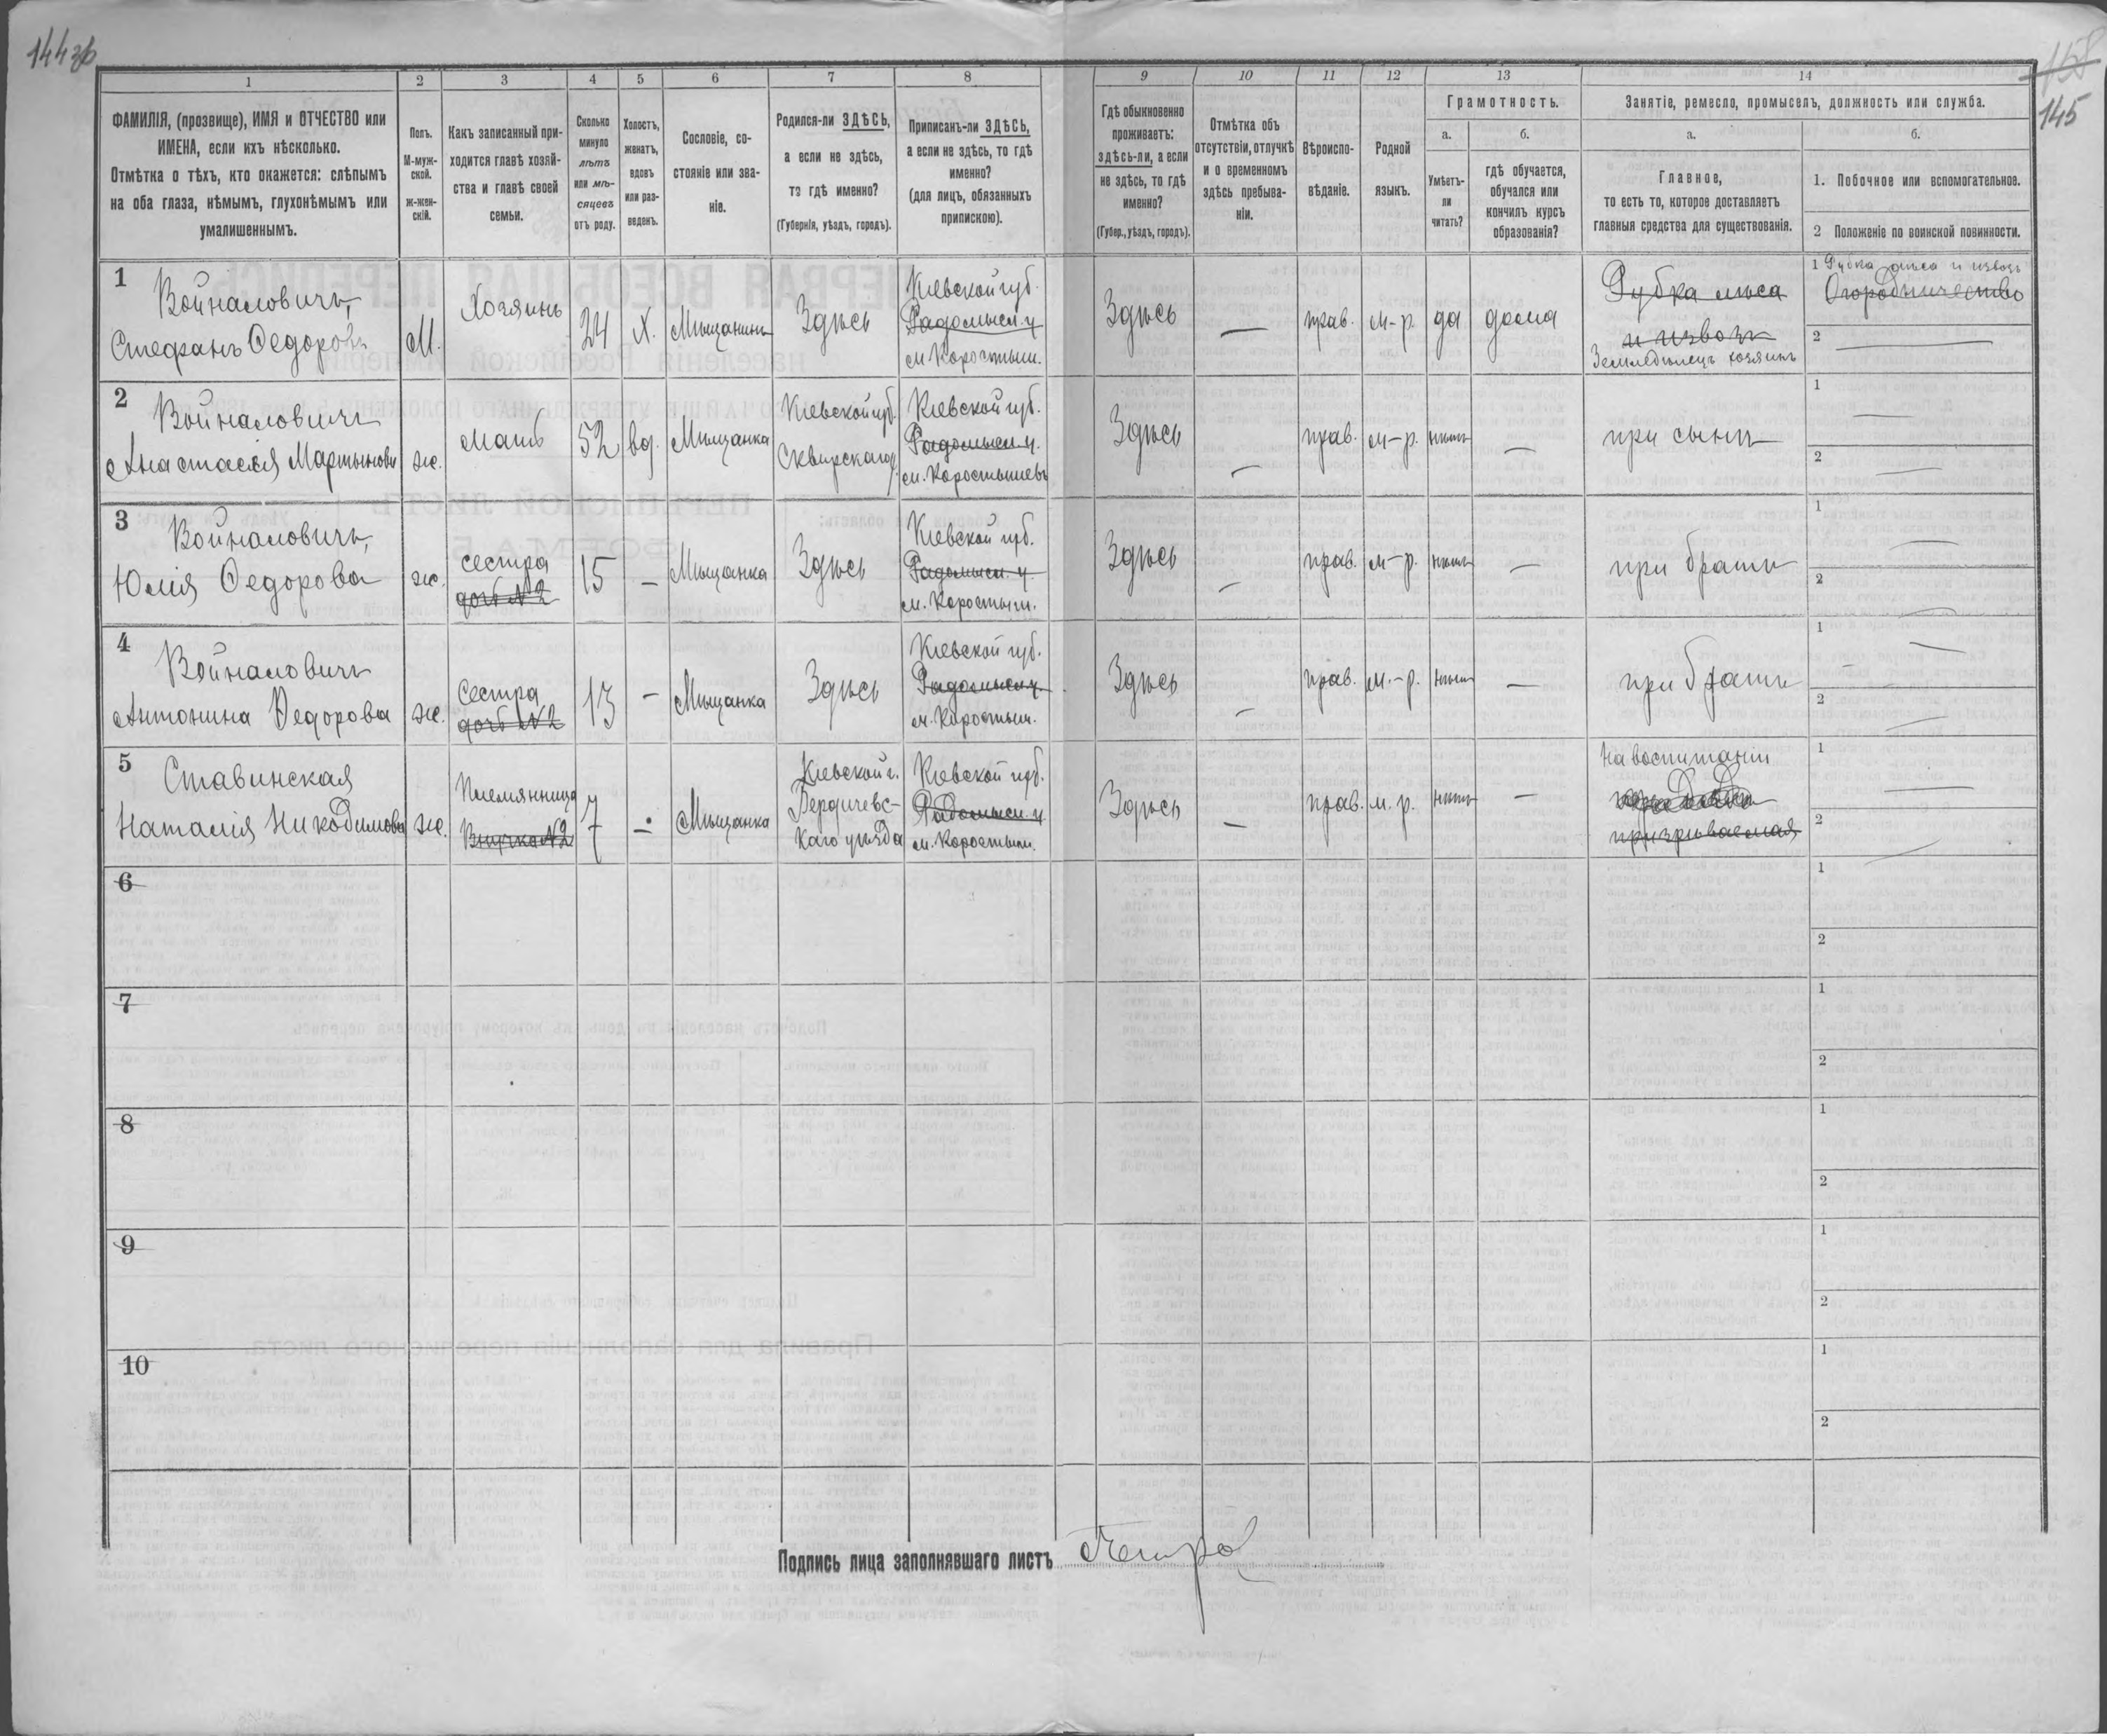 144 зв
158
145
1
2
3
4
5
6
7
8
9
10
11
12
13
14
ФАМИЛІЯ, (прозвище), ИМЯ и ОТЧЕСТВО или
ИМЕНА, если ихъ нѣсколько.
Отмѣтка о тѣхъ, кто окажется: слѣпымъ
на оба глаза, нѣмымъ, глухонѣмымъ или
умалишеннымъ.
Полъ.
М-муж-
ской.
ж-жен-
скій.
Какъ записанный при-
ходится главѣ хозяй-
ства и главѣ своей
семьи.
Сколько
минуло
лѣтъ
или мѣ-
сяцевъ
отъ роду.
Холостъ,
женатъ,
вдовъ
или раз-
веденъ.
Сословіе, со-
стояніе или зва-
ніе.
Родился-ли ЗДѢСЬ,
а если не здѣсь,
то гдѣ именно?
(Губернія, уѣздъ, городъ).
Приписанъ-ли ЗДѢСЬ,
а если не здѣсь, то гдѣ
именно?
(для лицъ, обязанныхъ
припискою).
Гдѣ обыкновенно
проживаетъ:
здѣсь-ли, а если
не здѣсь, то гдѣ
именно?
(Губер., уѣздъ, городъ).
Отмѣтка объ
отсутствіи, отлучкѣ
и о временномъ
здѣсь пребыва-
ніи.
Вѣроиспо-
вѣданіе.
Родной
языкъ.
Грамотность.
а.
Умѣетъ-
ли
читать?
б.
гдѣ обучается,
обучался или
кончилъ курсъ
образованія?
Занятіе, ремесло, промыселъ, должность или служба.
а.
Главное,
то есть то, которое доставляетъ
главныя средства для существованія.
б.
1. Побочное или вспомогательное.
2 Положеніе по воинской повинности.
1
Войналовичъ,
Стефанъ Федоровъ
М.
Хозяинъ
24
Х.
Мѣщанинъ
Здѣсь
Кіевской губ.
Радомысл. у
м. Коростыш.
Здѣсь
—
прав.
м-р.
да
дома
Рубка лѣса
и извозъ
Земледѣлецъ хозяинъ
1 Рубка лѣса и извозъ
Огородничество
2 —
2
Войналовичъ
Анастасія Мартынова
ж.
мать
52
вд.
Мѣщанка
Кіевской губ.
Сквирскаго у.
Кіевской губ.
Радомысл. у.
м. Коростышевъ
Здѣсь
—
прав.
м-р.
нѣтъ
—
при сынѣ
1 —
2 —
3
Войналовичъ,
Юлія Федорова
ж.
сестра
дочь №2
15
—
Мѣщанка
Здѣсь
Кіевской губ.
Радомысл. у.
м. Коростыш.
Здѣсь
—
прав.
м-р.
нѣтъ
—
при братѣ
1 —
2 —
4
Войналовичъ
Антонина Федорова
ж.
Сестра
дочь №2
13
—
Мѣщанка
Здѣсь
Кіевской губ.
Радомысл. у.
м. Коростыш.
Здѣсь
—
прав.
м.-р.
нѣтъ
—
при братѣ
1 —
2 —
5
Ставинская
Наталія Никодимова
ж.
Племянница
Внучка №2
7
—
Мѣщанка
Кіевской г.
Бердичевс-
каго уѣзда
Кіевской губ.
Радомысл. у
м. Коростыш.
Здѣсь
—
прав.
м. р.
нѣтъ
—
На воспитаніи
призрѣваемая
1
2 —
6
1
2
7
1
2
8
1
2
9
1
2
10
1
2
Подпись лица заполнявшаго листъ